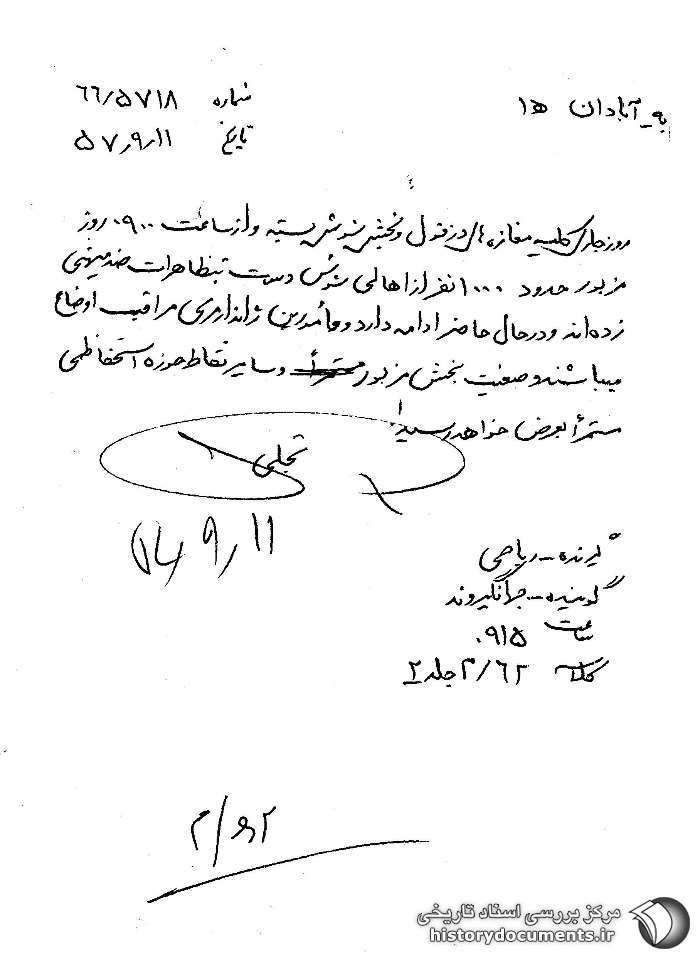 به_آبادان ۱ه
شماره ۶۶/۵۷۱۸
تاریخ ۵۷٫۹٫۱۱
روز جاری کلیه مغازه های دزفول و بخش شوش بسته و از ساعت ۰۹۰۰ روز
مزبور حدود ۱۰۰۰ نفر از اهالی شوش دست بتظاهرات ضد میهنی
زده‌اند و در حال حاضر ادامه دارد و مأمورین ژاندارمری مراقب اوضاع
میباشند وضعیت بخش مزبور و سایر نقاط حوزه استحفاظی
مستمرأ بعرض خواهد رسید
تجلی
۵۷٫۹٫۱۱
گیرنده_ریاحی
گوینده_جهانگیروند
ساعت ۰۹۱۵
کلاسه ۳/۶۲ جلد ۲
مرکز بررسی اسناد تاریخی
historydocuments.ir